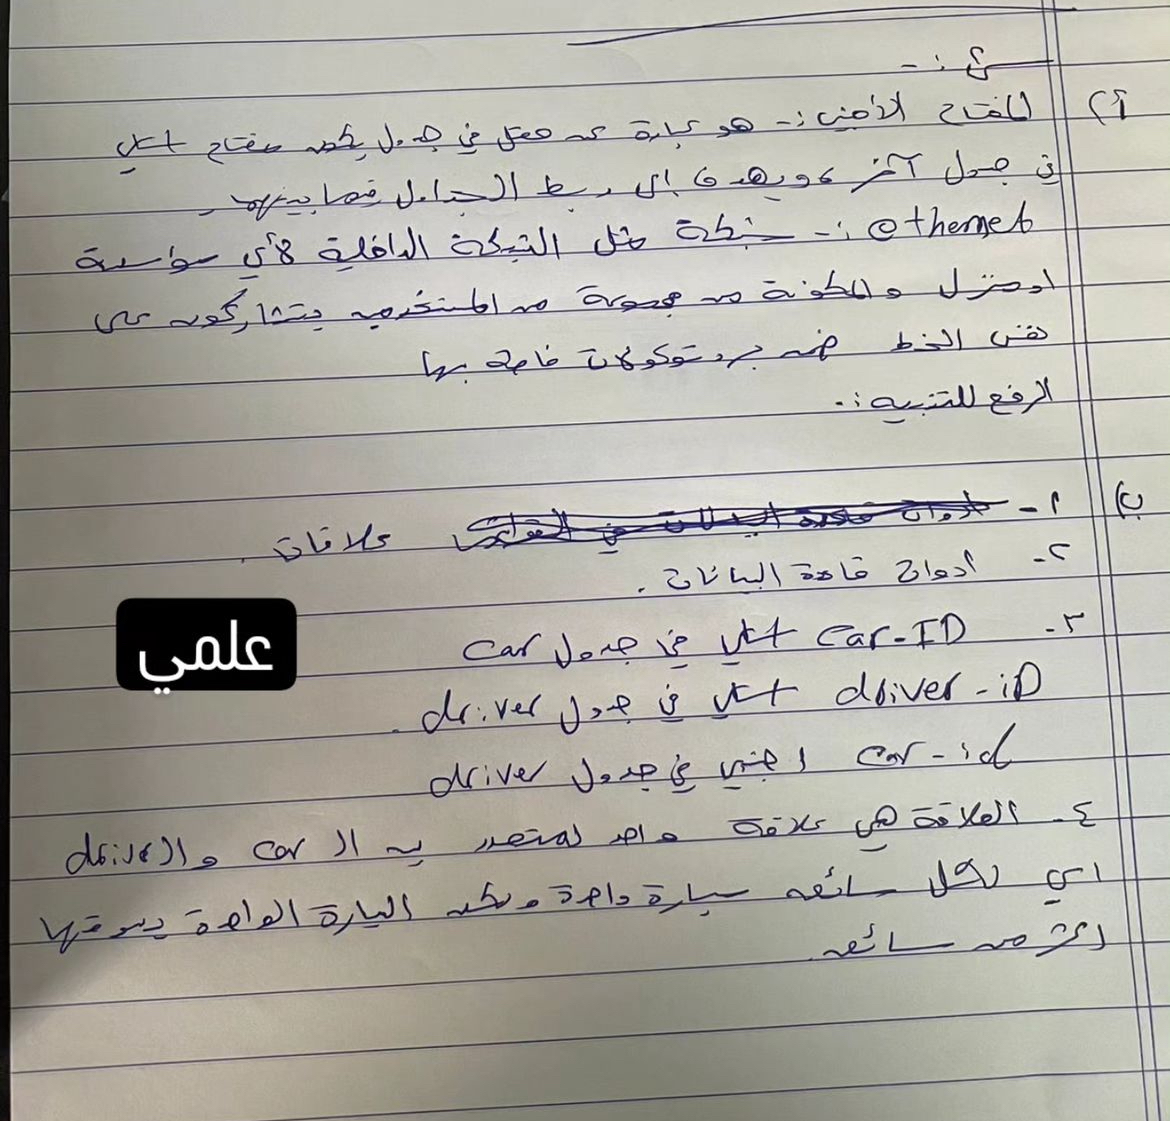 س٤ :-
أ) المفتاح الأجنبي :- هو عبارة عن حقل في جدول يكون مفتاح اساسي
في جدول آخر ويهدف الى ربط الجداول فيما بينهم
ethernet :- شبكة مثل الشبكة الداخلية لأي مؤسسة
او منزل والمكونة من مجموعة من المستخدمين يتشاركون على
نفس الخط ضمن بروتوكولات خاصة بها
الرفع للتنبيه :-
ب) ١- علاقات .
٢- أدوات قاعدة البيانات .
٣- car-ID اساسي في جدول car
driver-iD اساسي في جدول driver .
car-id اجنبي في جدول driver
٤- العلاقة هي علاقة واحد لمتعدد بين الـ car والـ driver
اي لكل سائق سيارة واحدة ولكن السيارة الواحدة يسوقها
اكثر من سائق .
علمي